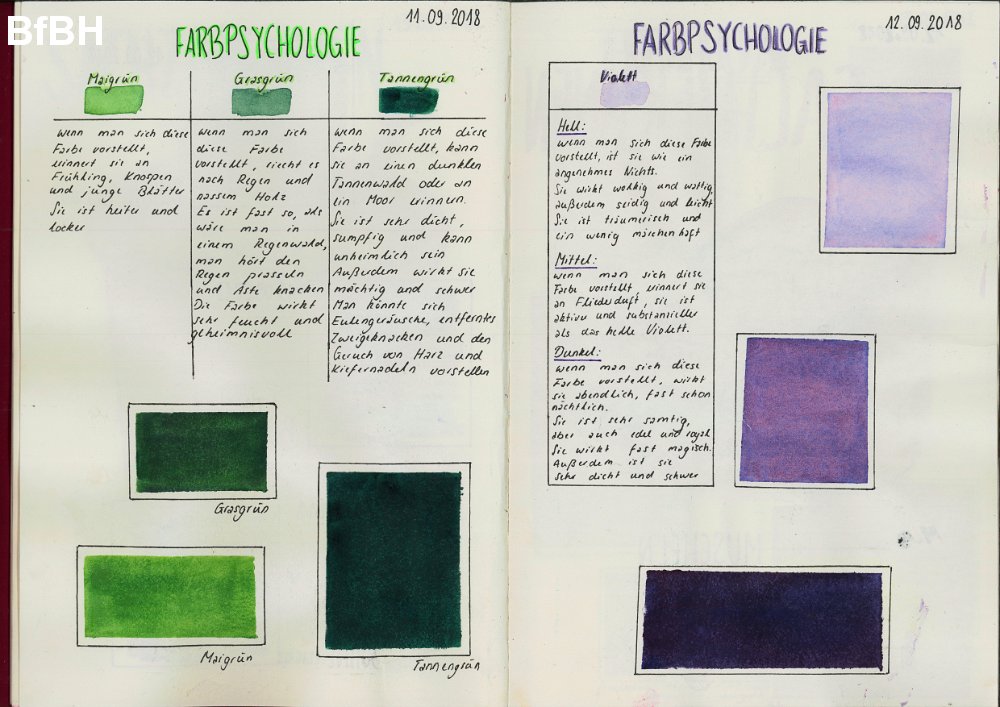 BfBH
11.09.2018
FARBPSYCHOLOGIE
Maigrün
wenn man sich diese
Farbe vorstellt,
erinnert sie an
Frühling, Knospen
und junge Blätter
Sie ist heiter und
locker
Grasgrün
wenn man sich
diese Farbe
vorstellt, riecht es
nach Regen und
nassem Holz
Es ist fast so, als
wäre man in
einem Regenwald,
man hört den
Regen prasseln
und Äste knacken
Die Farbe wirkt
sehr feucht und
geheimnisvoll
Tannengrün
wenn man sich diese
Farbe vorstellt, kann
sie an einen dunklen
Tannenwald oder an
ein Moor erinnern.
Sie ist sehr dicht,
sumpfig und kann
unheimlich sein
Außerdem wirkt sie
mächtig und schwer
Man könnte sich
Eulengeräusche, entferntes
Zweigeknacken und den
Geruch von Harz und
Kiefernadeln vorstellen
Grasgrün
Maigrün
Tannengrün
12.09.2018
FARBPSYCHOLOGIE
Violett
Hell:
wenn man sich diese Farbe
vorstellt, ist sie wie ein
angenehmes Nichts.
Sie wirkt wolkig und wattig,
außerdem seidig und leicht
Sie ist träumerisch und
ein wenig märchenhaft
Mittel:
wenn man sich diese
Farbe vorstellt erinnert sie
an Fliederduft, sie ist
aktiver und substanzieller
als das helle Violett.
Dunkel:
wenn man sich diese
Farbe vorstellt, wirkt
sie abendlich, fast schon
nächtlich.
Sie ist sehr samtig,
aber auch edel und royal
Sie wirkt fast magisch.
Außerdem ist sie
sehr dicht und schwer